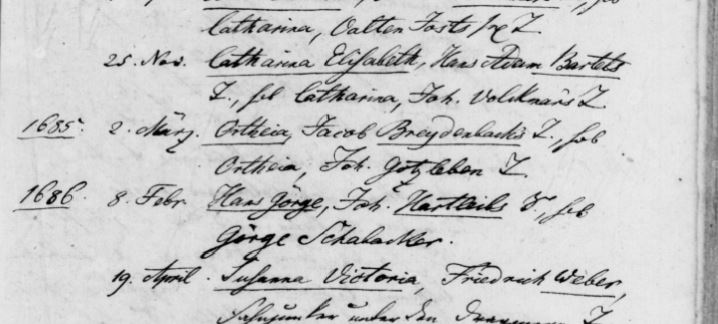 Catharina, Valten Josts fr. T.
25. Nov. Catharina Elisabeth, Hans Adam Bartels
T., sub Catharina, Joh. Volcknars T.
1685. 2. März. Ortheia, Jacob Breydenbachs T., sub
Ortheia, Joh. Gotzleben T.
1686. 8. Febr. Hans Görge, Joh. Hartleibs S., sub
Görge Schabacker.
19. April. Susanna Victoria, Friedrich Weber,
unter den T.